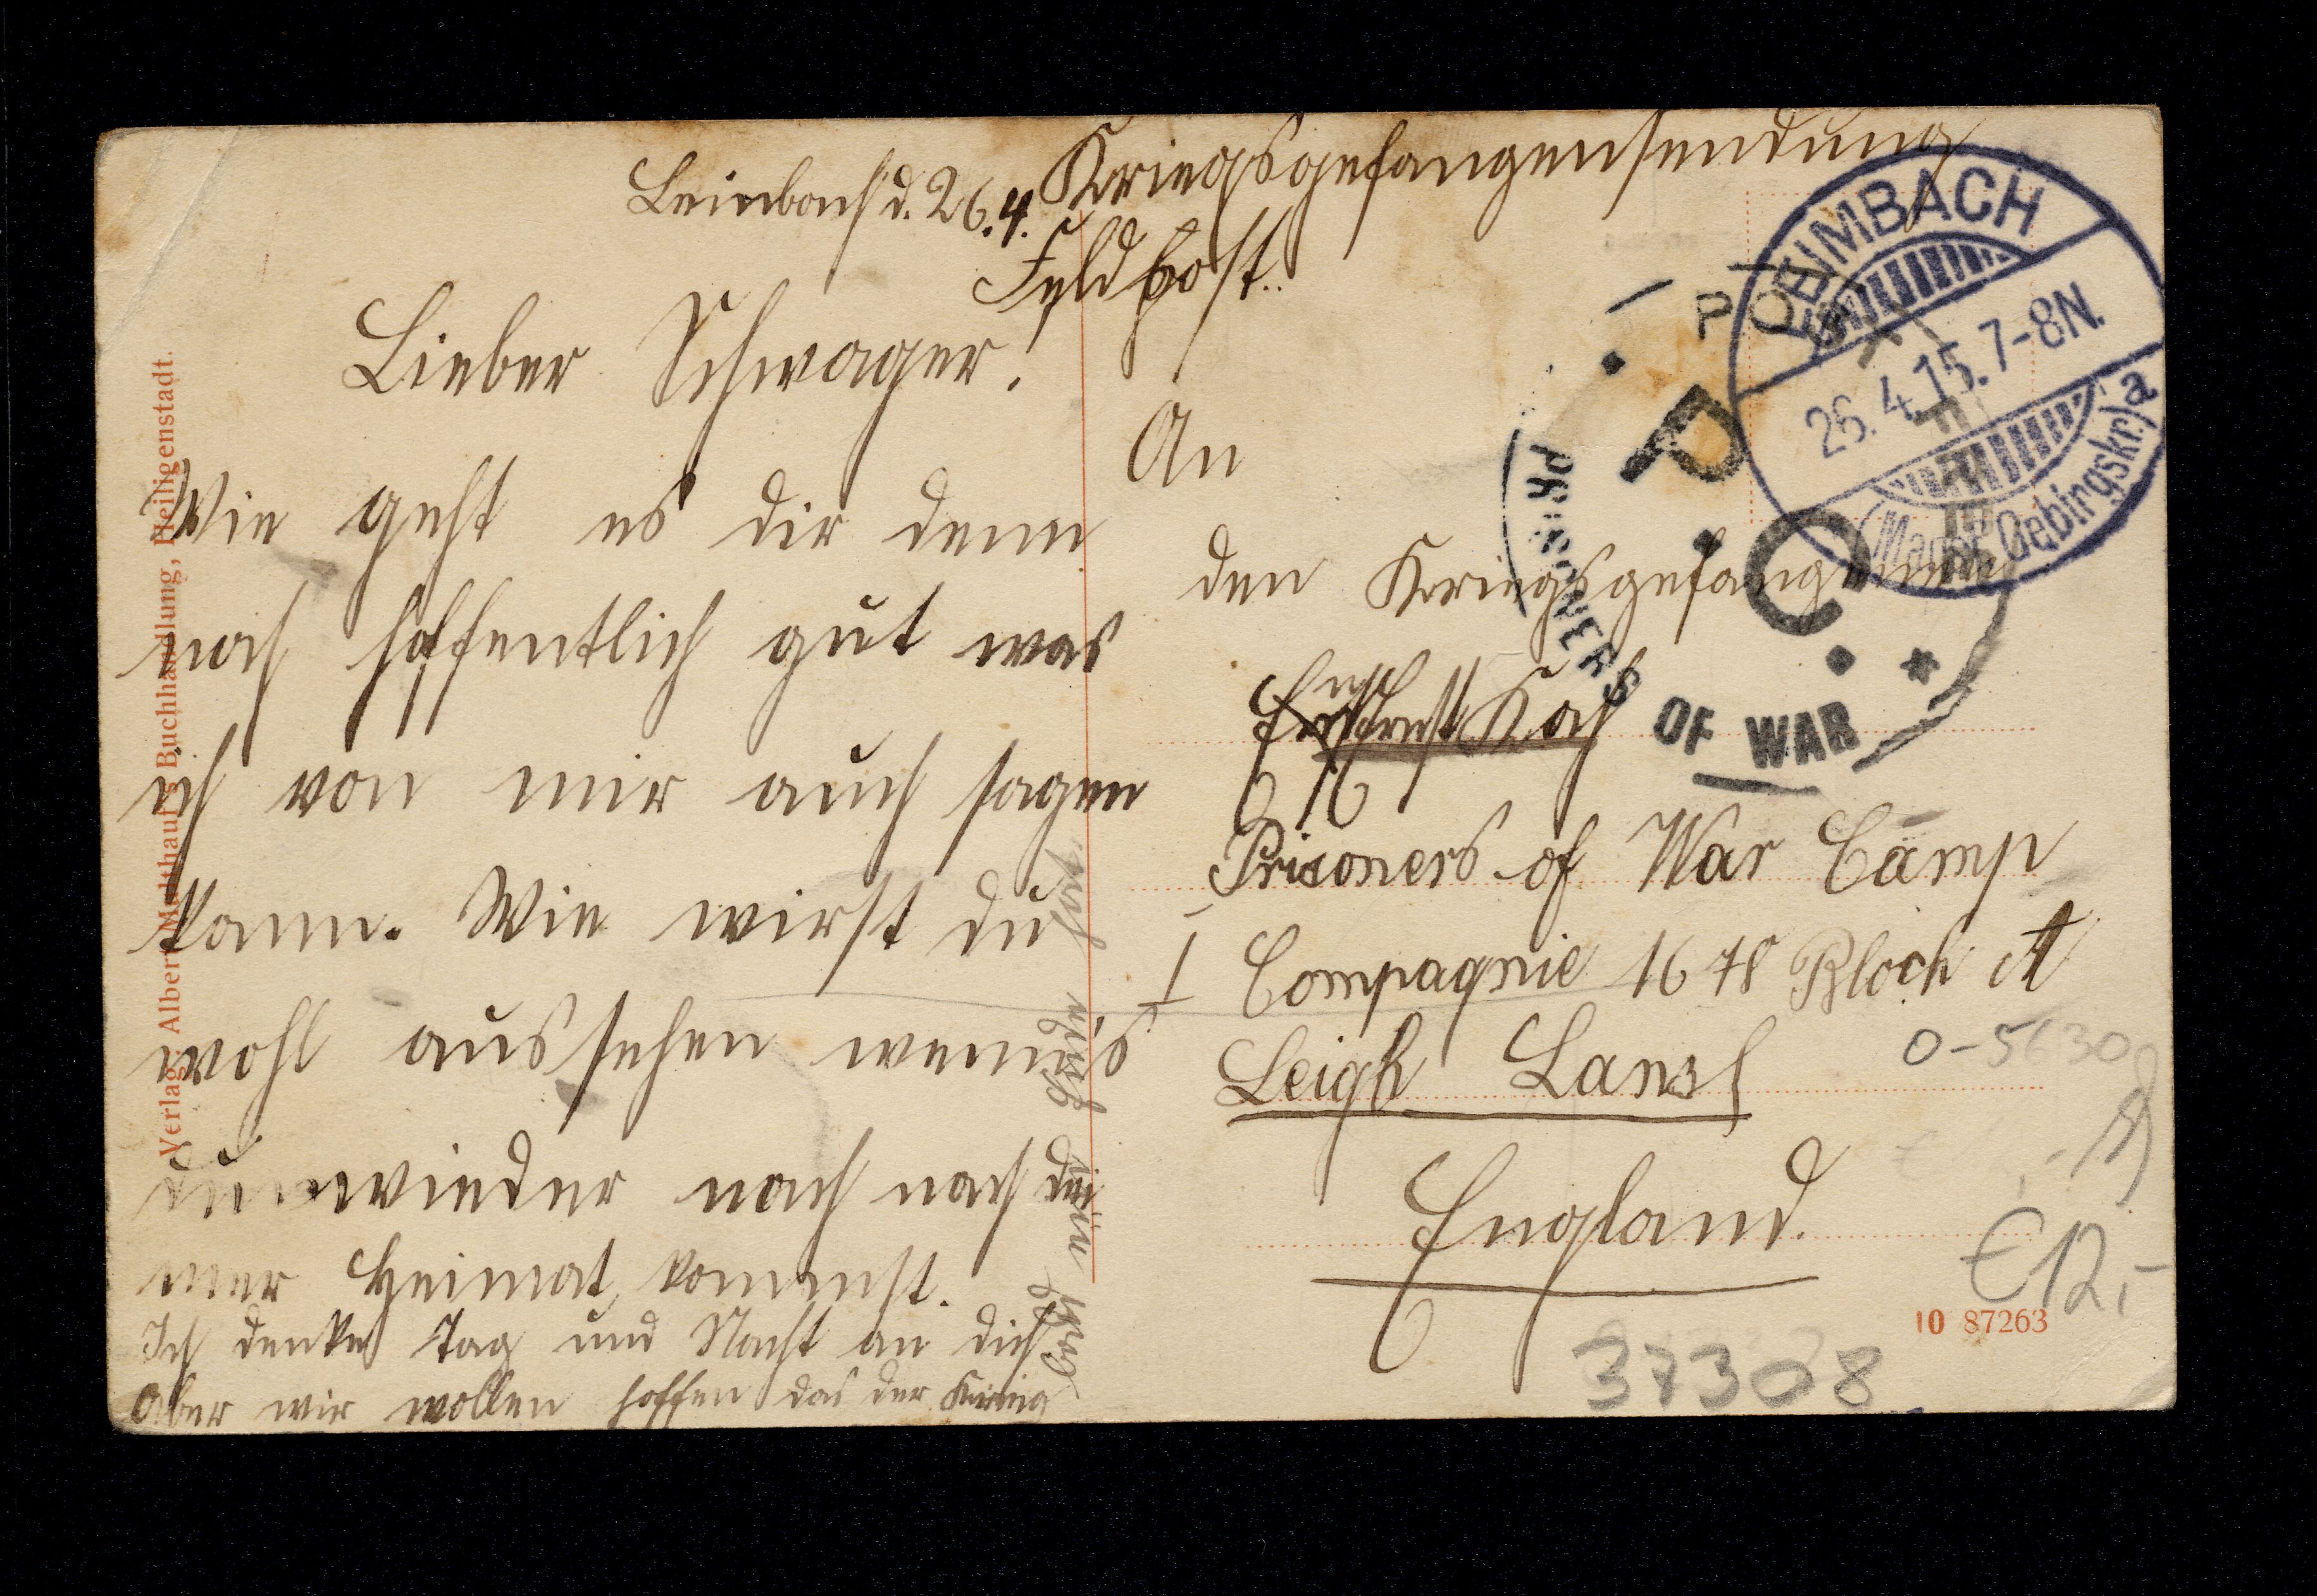 Leimbach d. 26.4.
Kriegsgefangensendung
Feldpost.
Lieber Schwager!
Wie geht es dir denn
noch hoffentlich gut was
ich von mir auch sagen
kann. Wie wirst du
wohl aussehen wenn's
du wieder nach nach dei
ner Heimat kommst.
Ich denke Tag und Nacht an dich
Aber wir wollen hoffen das der Krieg
An
den Kriegsgefangenen
Ernst Koch
Prisoners of War Camp
I Compagnie 1678 Block A
Leigh Lansh
England.
LEIMBACH
26. 4.15. 7-8N.
(Mansf. Gebirgskr.) a
POST FREE
P.C.
PRISONERS OF WAR
Verlag: Albert Buchhandlung, Heiligenstadt.
€12,-
10 87263
37308